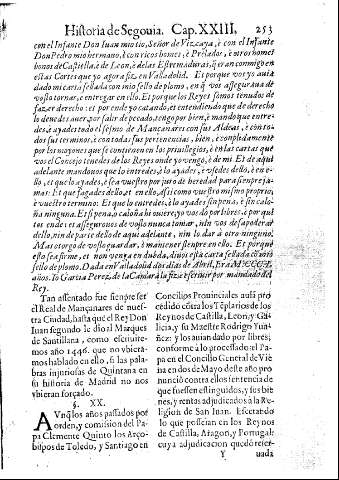 Historia de Segouia. Cap. XXIII. 253
con el Infante Don Iuan mio tio, Señor de Vizcaya, è con el Infante
Don Pedro mio hermano, è con ricos homes, è Prelados, è otros homes
bonos de Castilla, è de Leon, è de las Estremaduras, q̃ eran conmigo en
estas Cortes que yo agora fiz en Valladolid. Et porque vos yo auia
dado mi carta sellada con mio sello de plomo, en q̃ vos asseguraua de
vos lo tornar, è entregar en ello. Et porque los Reyes somos tenudos de
fazer derecho: et por ende yo catando, et entendiendo que de derecho
lo deuedes auer, por salir de pecado, tengo por bien, è mando que entre-
des, è ayades todo el sesmo de Mançanares con sus Aldeas, è con to-
dos sus terminos, è con todas sus pertenencias, bien, è complidamente
por los mojones que se contienen en los priuillegios, è en las cartas que
vos el Concejo tenedes de los Reyes onde yo vengo, è de mi. Et de aqui
adelante mandouos que lo entredes, è lo ayades, è vsedes dello, è en e-
llo, et que lo ayades, è sea vuestro por juro de heredad para siempre ja-
mas: Et que fagades dello, et en ello, assi como vuestro mismo proprio,
è vuestro termino: Et que lo entredes, è lo ayades sin pena, è sin calo-
ña ninguna. Et si pena, ò caloña hi ouiere, yo vos do por libres, è por qui-
tos ende: et asseguro uos de vos lo nunca tomar, nin vos desapoderar
dello, nin de parte dello de aqui adelante, nin lo dar à otro ninguno.
Mas otorgo de vos lo guardar, è mantener siempre en ello. Et porque
esto sea firme, et non venga en dubda, diuos esta carta sellada con mio
sello de plomo. Dada en Valladolid dos dias de Abril, Era M.CCC.L.
años. Yo Garcia Perez, de la Camara la fize escriuir por mandado del
Rey.
Tan assentado fue siempre ser
el Real de Mançanares de nues-
tra Ciudad, hasta que el Rey Don
Iuan segundo le dio al Marques
de Santillana, como escriuire-
mos año 1446. que no vbiera-
mos hablado en ello, si las pala-
bras injuriosas de Quintana en
su historia de Madrid no nos
vbieran forçado.
§. XX.
AVnq̃ los años passados por
orden, y comision del Pa-
pa Clemente Quinto los Arço-
bispos de Toledo, y Santiago en
Concilios Prouinciales auiã pro
cedido contra los Tẽplarios de los
Reynos de Castilla, Leon, y Ga-
licia, y su Maestre Rodrigo Yua-
ñez: y los auian dado por libres;
conforme à lo processado el Pa-
pa en el Concilio General de Vie
na en dos de Mayo deste año pro
nunciò contra ellos sentencia de
que fuessen estinguidos, y sus bie
nes, y rentas adjudicados à la Re-
ligion de San Iuan. Eset̃ando
lo que posseian en los Reynos
de Castilla, Aragon, y Portugal:
cuya adjudicacion quedò reser-
Y uada